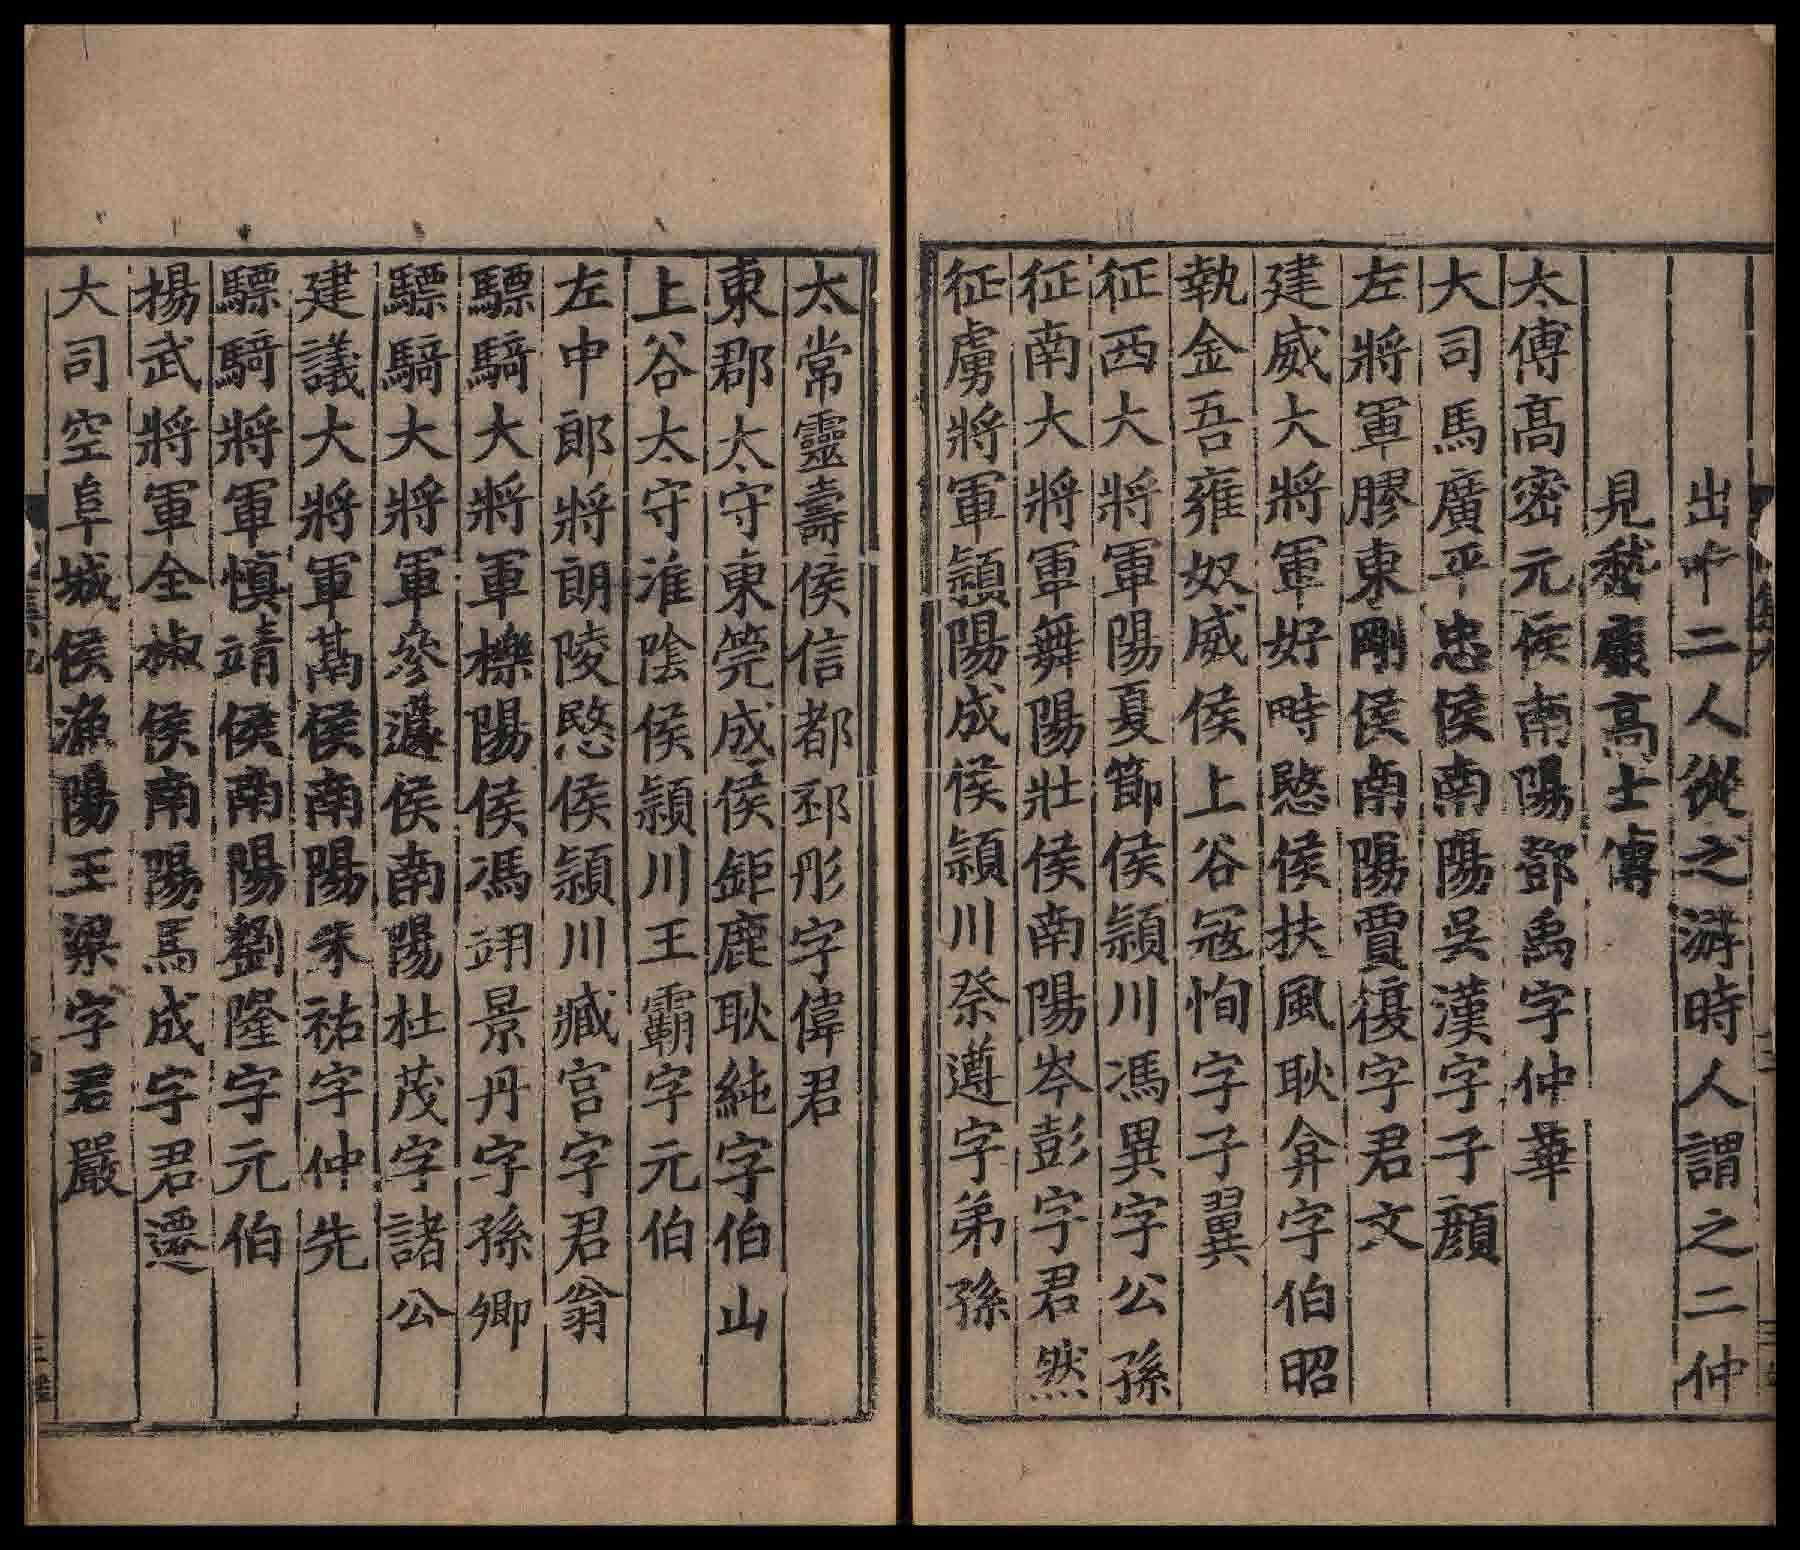 出唯二人從之游時人謂之二仲
見嵇康高士傳
太傅高密元侯南陽鄧禹字仲華
大司馬廣平忠侯南陽吳漢字子顏
左將軍膠東剛侯南陽賈復字君文
建威大將軍好畤愍侯扶風耿弇字伯昭
執金吾雍奴威侯上谷寇恂字子翼
征西大將軍陽夏節侯潁川馮異字公孫
征南大將軍舞陽壯侯南陽岑彭字君然
征虜將軍潁陽成侯潁川祭遵字弟孫
太常靈壽侯信都邳彤字偉君
東郡太守東筦成侯鉅鹿耿純字伯山
上谷太守淮陰侯潁川王霸字元伯
左中郎將朗陵愍侯潁川臧宮字君翁
驃騎大將軍櫟陽侯馮翊景丹字孫卿
驃騎大將軍參蘧侯南陽杜茂字諸公
建議大將軍鬲侯南陽朱祐字仲先
驃騎將軍慎靖侯南陽劉隆字元伯
揚武將軍全椒侯南陽馬成字君遷
大司空阜城侯漁陽王梁字君嚴